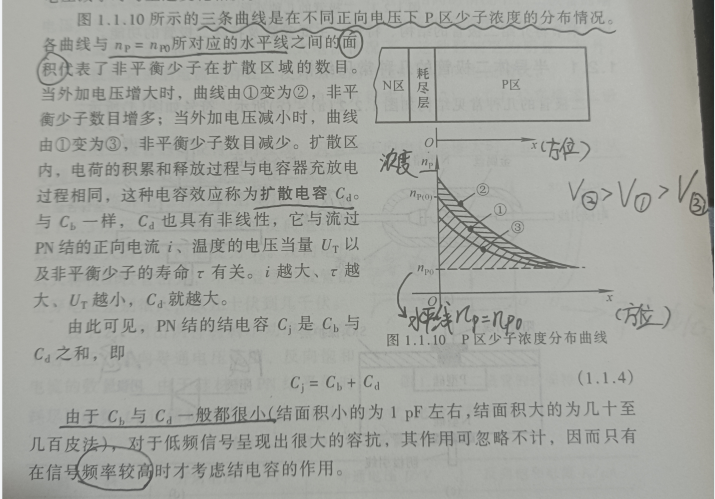 图 1.1.10 所示的三条曲线是在不同正向电压下 P 区少子浓度的分布情况。
各曲线与 nP = nP0 所对应的水平线之间的面
积代表了非平衡少子在扩散区域的数目。
当外加电压增大时，曲线由①变为②，非平
衡少子数目增多；当外加电压减小时，曲线
由①变为③，非平衡少子数目减少。扩散区
内，电荷的积累和释放过程与电容器充放电
过程相同，这种电容效应称为扩散电容 Cd。
与 Cb 一样，Cd 也具有非线性，它与流过
PN 结的正向电流 i、温度的电压当量 UT 以
及非平衡少子的寿命 τ 有关。i 越大、τ 越
大、UT 越小，Cd 就越大。
由此可见，PN 结的结电容 Cj 是 Cb 与
Cd 之和，即
N区
耗尽层
P区
O
x (方位)
浓度 nP
nP(0)
②
①
③
nP0
V② > V① > V③
O
x
(方位)
水平线 nP = nP0
图 1.1.10 P 区少子浓度分布曲线
Cj = Cb + Cd (1.1.4)
由于 Cb 与 Cd 一般都很小(结面积小的为 1 pF 左右,结面积大的为几十至
几百皮法)，对于低频信号呈现出很大的容抗，其作用可忽略不计，因而只有
在信号频率较高时才考虑结电容的作用。